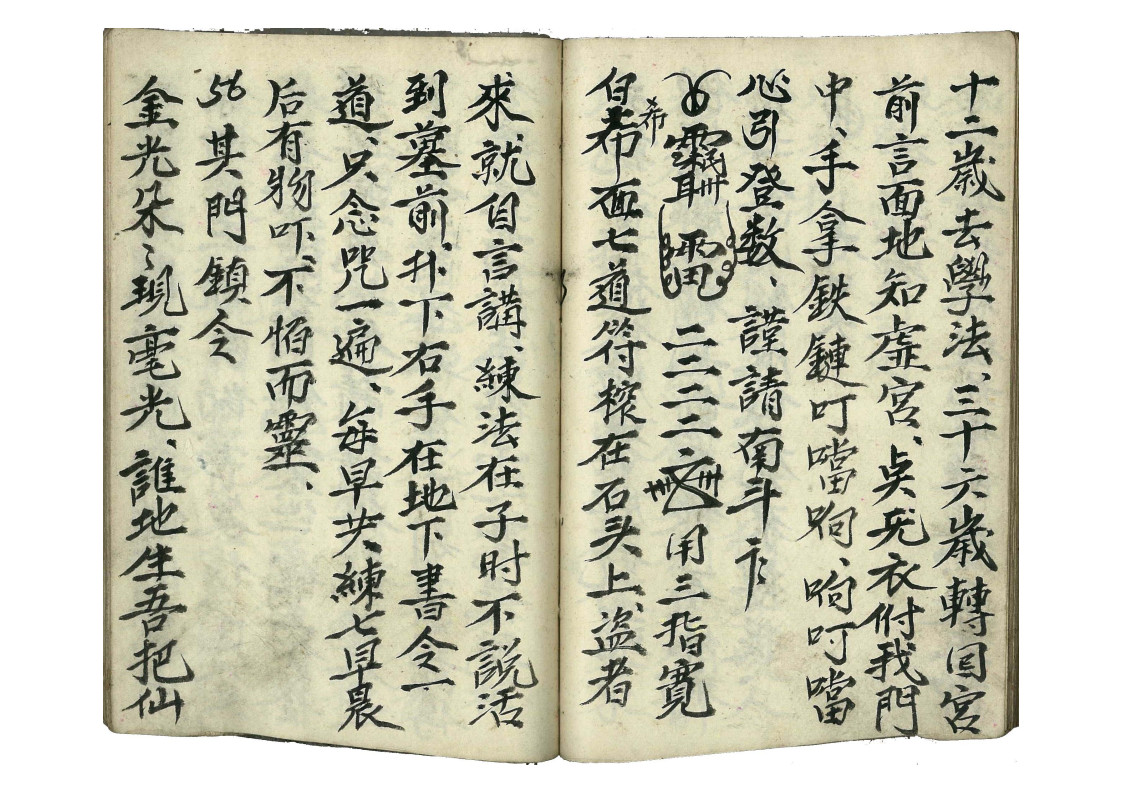 十二歲去學法、三十六歲轉回宮
前言面地知虛宮、兵死衣付我門
中、手拿鉄鏈叮噹响、响叮噹
心引登数、謹請南斗
二二二二、用三指寬
白希面七道符搾在石头上、盗者
希
來、就自言講、練法在子时不説活
到墓前、扑下右手在地下書令一
道、只念咒一遍、每早共、練七早晨
后有物吓、不怕而靈、
56 其門鎮令
金光朵々現毫光、誰地坐吾把仙